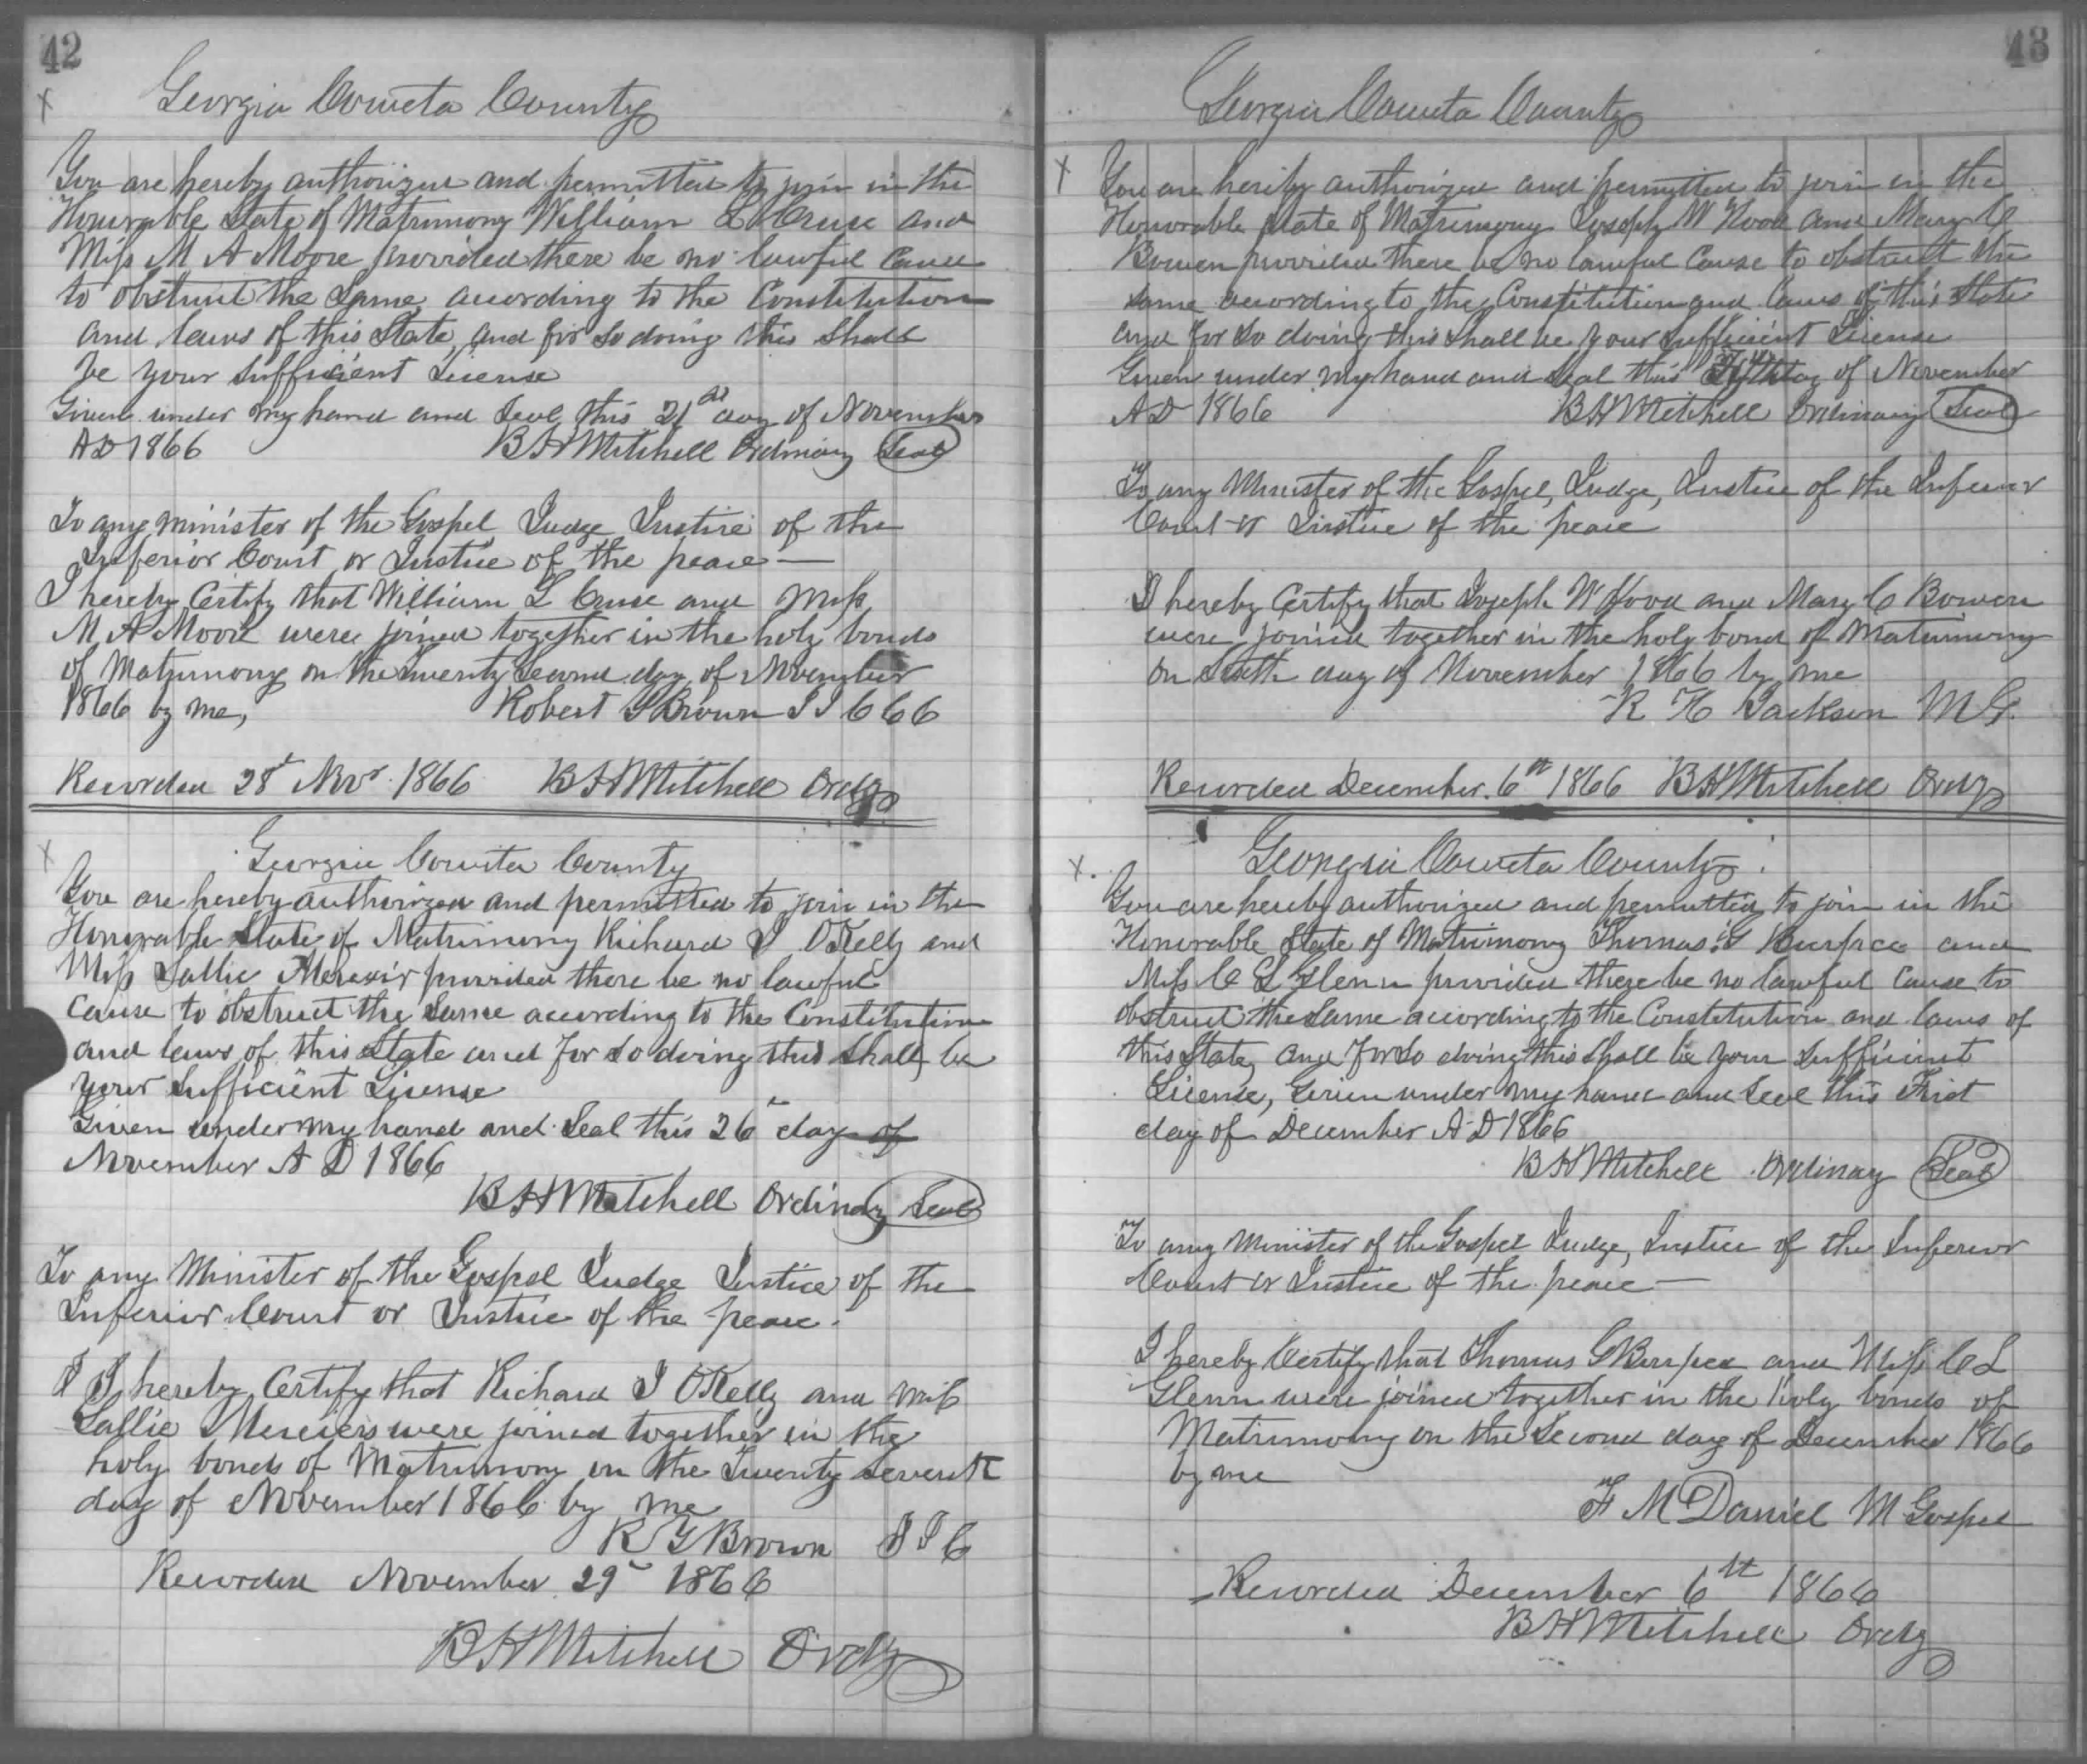 42
Georgia Coweta County
You are hereby authorized and permitted to join in the
Honorable State of Matrimony William L Cruse and
Miss M A Moore provided there be no lawful cause
to obstruct the Same according to the Constitution
and laws of this State, and for so doing this Shall
be your sufficient License
Given under my hand and Seal this 21st day of November
AD 1866 B H Mitchell Ordinary Seal
To any minister of the Gospel Judge Justice of the
Inferior Court or Justice of the peace —
I hereby Certify that William L Cruse and Miss
M A Moore were joined together in the holy bonds
of Matrimony on the Twenty Second day of November
1866 by me, Robert G Brown J I C
Recorded 28t Novr 1866 B H Mitchell Ordy
Georgia Coweta County
You are hereby authorized and permitted to join in the
Honorable State of Matrimony Richard J OKelly and
Miss Sallie provided there be no lawful
cause to obstruct the Same according to the Constitution
and laws of this State and for so doing this Shall be
your Sufficient License
Given under my hand and Seal this 26 day of
November A D 1866
B H Mitchell Ordinary Seal
To any Minister of the Gospel Judge Justice of the
Inferior Court or Justice of the peace.
I hereby Certify that Richard J OKelly and Miss
Sallie were joined together in the
holy bonds of Matrimony on the Twenty Seventh
day of November 1866 by me
R G Brown J I C
Recorded November 29 1866
B H Mitchell Ordy
43
Georgia Coweta County
You are hereby authorized and permitted to join in the
Honorable State of Matrimony Joseph W Hood and Mary C
Bowen provided there be no lawful Cause to obstruct the
same according to the Constitution and laws of this State
and for so doing this shall be your sufficient License
Given under my hand and Seal this day of November
AD 1866 B H Mitchell Ordinary Seal
To any Minister of the Gospel, Judge, Justice of the Inferior
Court or Justice of the peace
I hereby Certify that Joseph W Hood and Mary C Bowen
were joined together in the holy bond of Matrimony
on Sixth day of November 1866 by me
R H Jackson M G.
Recorded December 6th 1866 B H Mitchell Ordy
Georgia Coweta County
You are hereby authorized and permitted to join in the
Honorable State of Matrimony Thomas G and
Miss C L Glenn provided there be no lawful cause to
obstruct the Same according to the Constitution and laws of
this State, and for so doing this Shall be your sufficient
License, Given under my hand and Seal this First
day of December A D 1866
B H Mitchell Ordinary Seal
To any Minister of the Gospel Judge, Justice of the Inferior
Court or Justice of the peace —
I hereby Certify that Thomas G and Miss C L
Glenn were joined together in the holy bonds of
Matrimony on the Second day of December 1866
by me
F M Daniel M Gospel
Recorded December 6th 1866
B H Mitchell Ordy